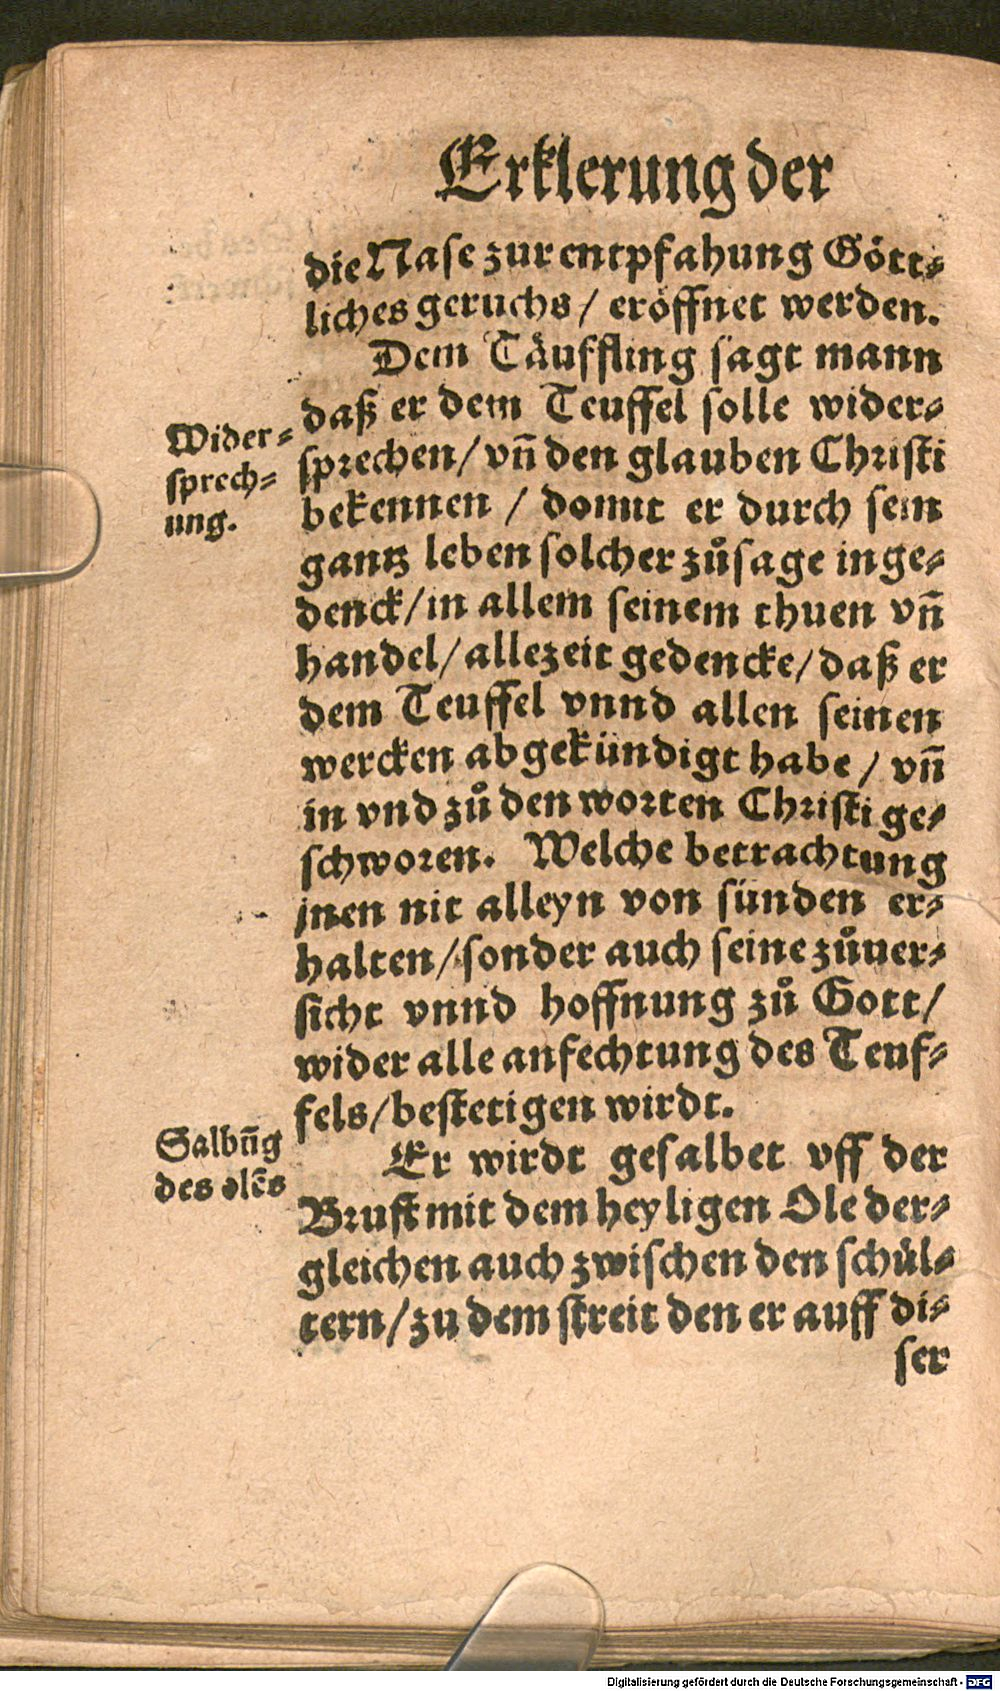 Erklerung der
die Nase zur entpfahung Gött⸗
liches geruchs / eröffnet werden.
Dem Täuffling sagt mann
daß er dem Teuffel solle wider⸗
sprechen / vn̄ den glauben Christi
bekennen / domit er durch sein
gantz leben solcher zůsage inge⸗
denck / in allem seinem thuen vn̄
handel / allezeit gedencke / daß er
dem Teuffel vnnd allen seinen
wercken abgekündigt habe / vn̄
in vnd zů den worten Christi ge⸗
schworen. Welche betrachtung
jnen nit alleyn von sünden er⸗
halten / sonder auch seine zůuer⸗
sicht vnnd hoffnung zů Gott /
wider alle anfechtung des Teuf⸗
fels / bestetigen wirdt.
Er wirdt gesalbet vff der
Brust mit dem heyligen Ole der⸗
gleichen auch zwischen den schül⸗
tern / zu dem streit den er auff di⸗
ser
Wider⸗
sprech⸗
ung.
Salbūg
des olēs
Digitalisierung gefördert durch die Deutsche Forschungsgemeinschaft - DFG